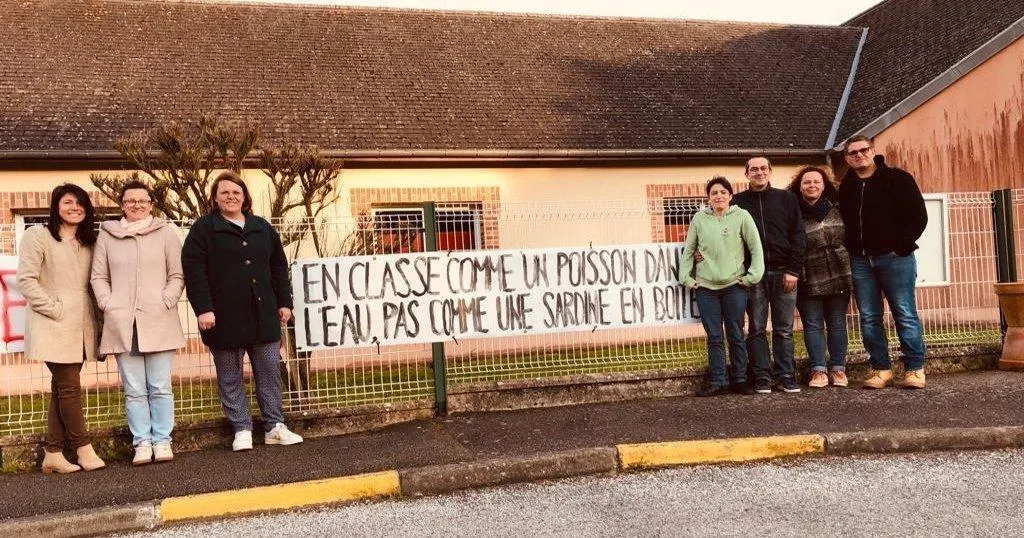 EN CLASSE COMME UN POISSON DANS
L'EAU, PAS COMME UNE SARDINE EN BOITE